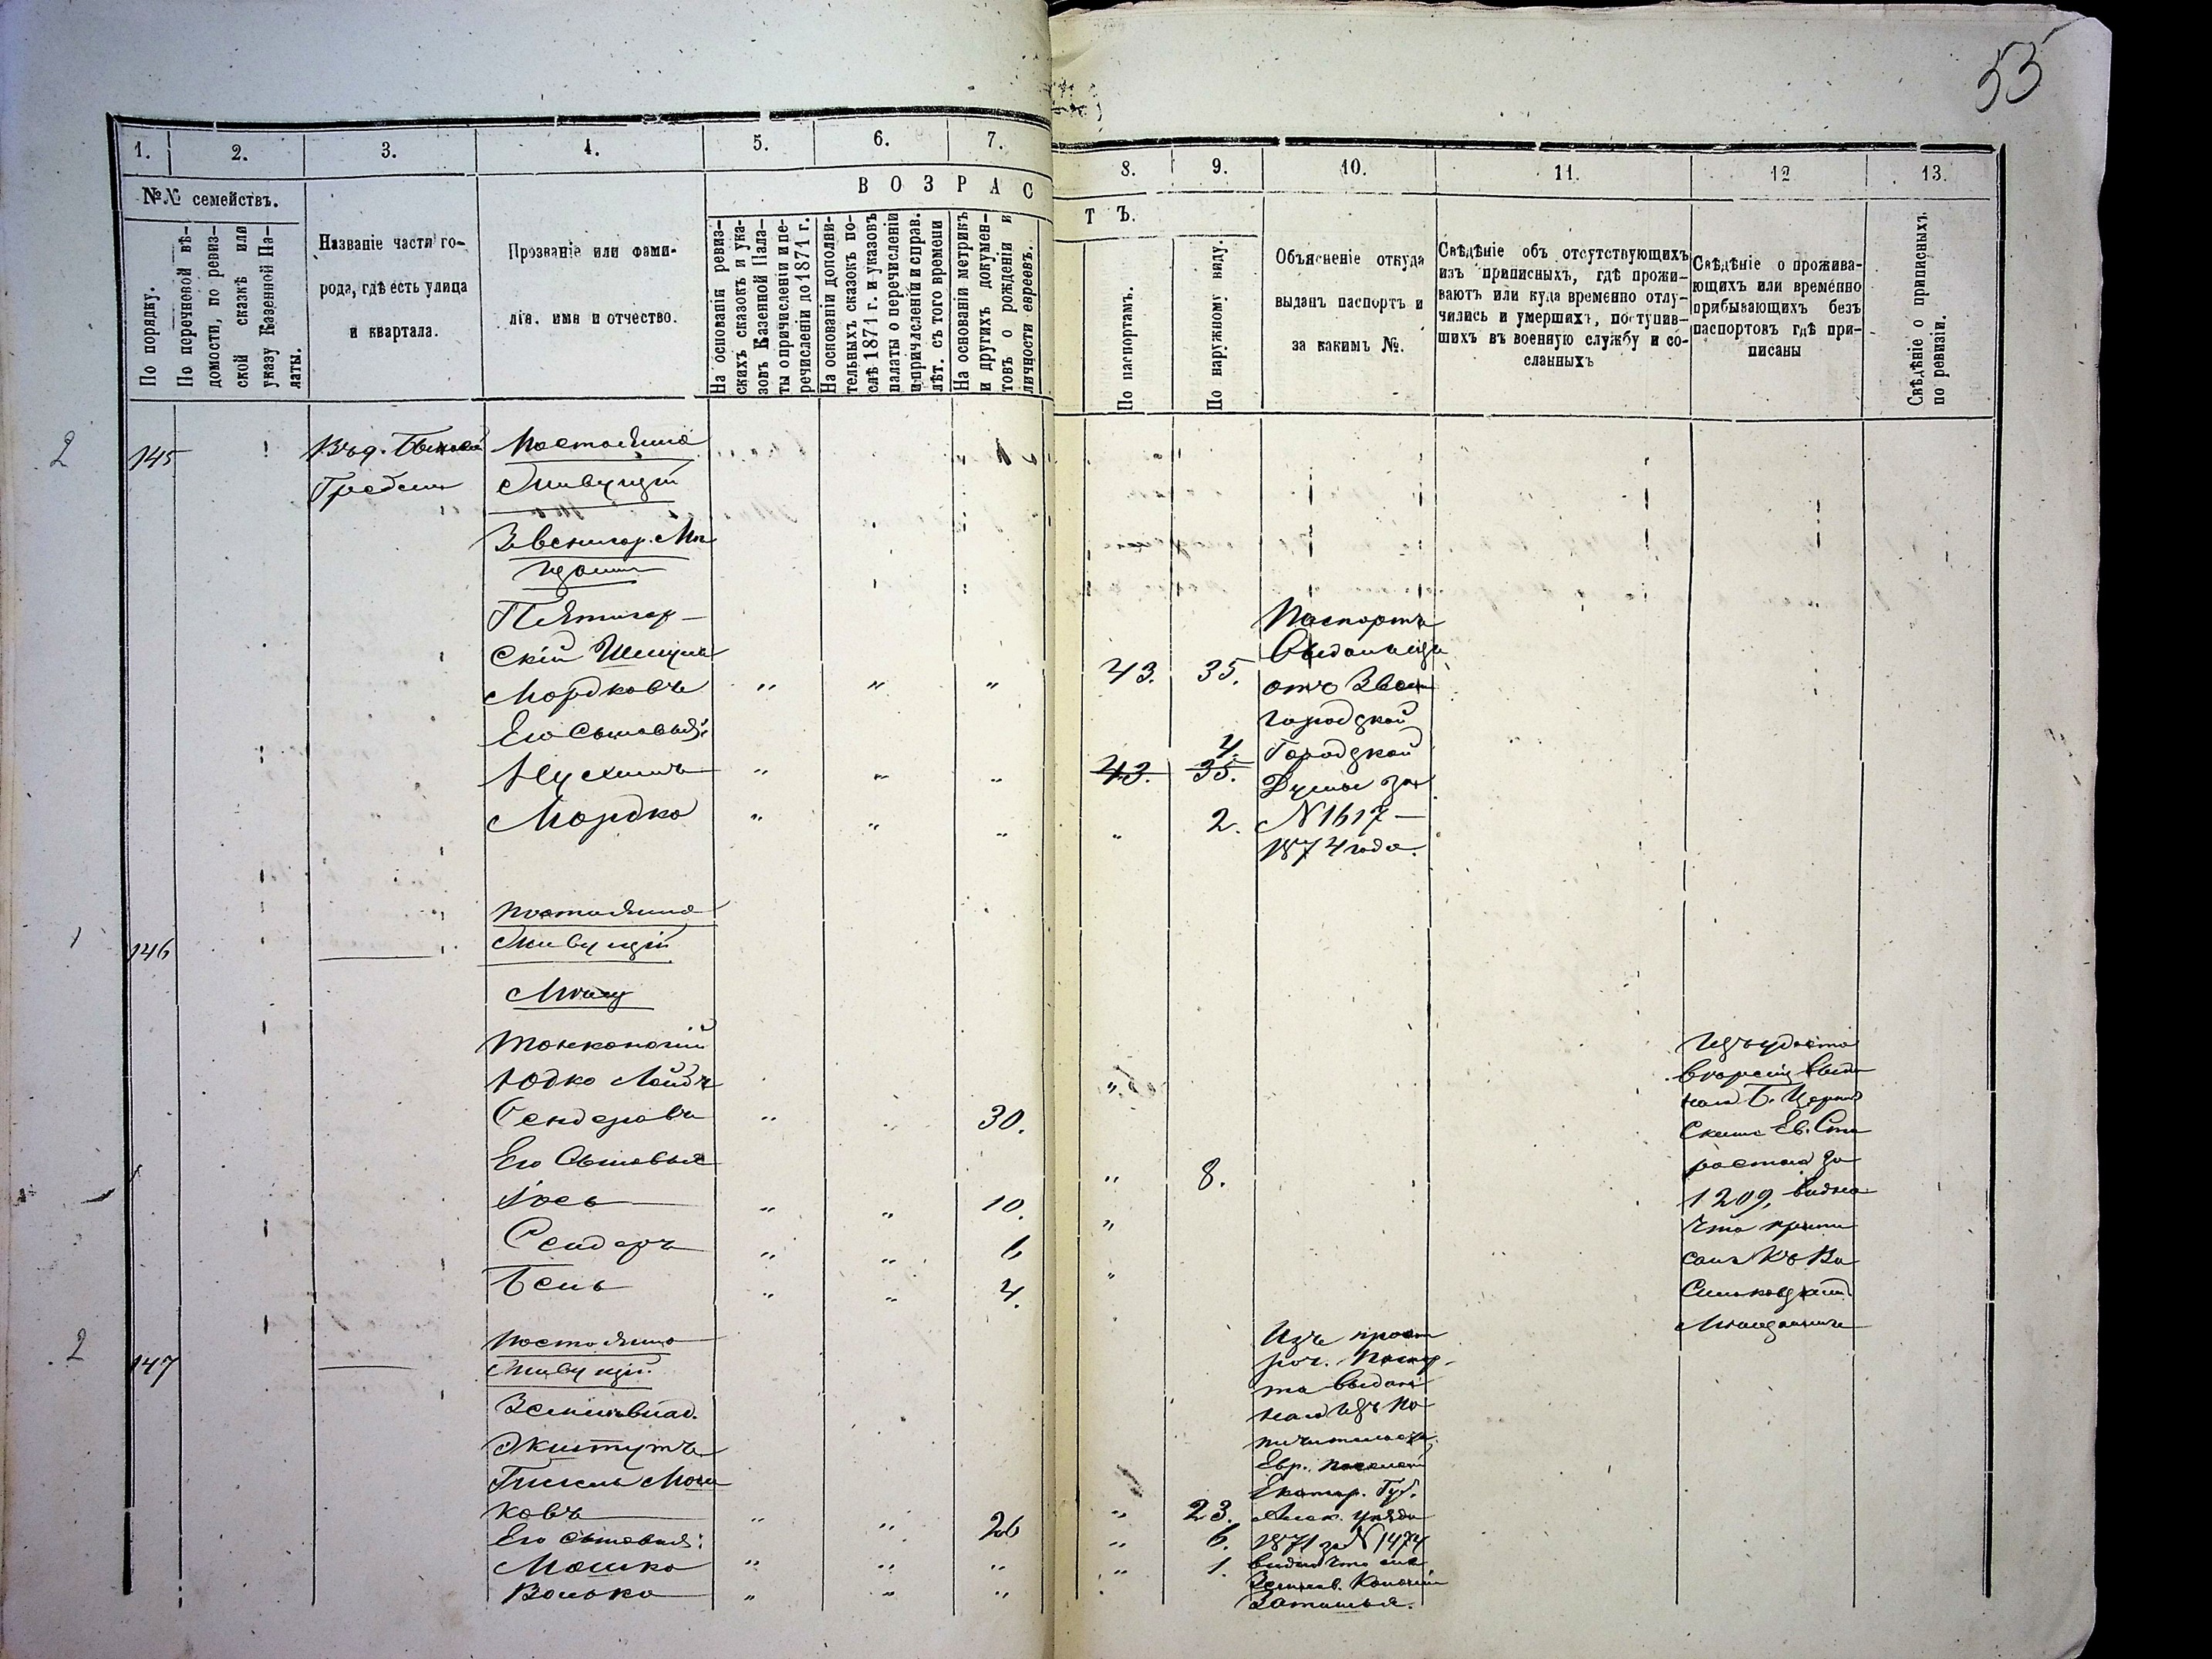 53
1.
2.
3.
4.
5.
6.
7.
8.
9.
10.
11.
12
13.
№№ семействъ.
ВОЗРАС
ТЪ.
По порядку.
По перечневой вѣ-
домости, по ревиз-
ской сказкѣ или
указу Казенной Па-
латы.
Названіе части го-
рода, гдѣ есть улица
и квартала.
Прозваніе или фами-
лія, имя и отчество.
На основанія ревиз-
скихъ сказокъ и ука-
зовъ Казенной Пала-
ты о причисленіи и пе-
речисленіи до 1871 г.
На основаніи дополни-
тельныхъ сказокъ по-
слѣ 1871 г. и указовъ
палаты о перечисленіи
и причисленіи и справ.
лѣт. съ того времени
На основаніи метрикъ
и другихъ докумен-
товъ о рожденіи и
личности евреевъ.
По паспортамъ.
По наружному виду.
Объясненіе откуда
выданъ паспортъ и
за какимъ №.
Свѣдѣніе объ отсутствующихъ
изъ приписныхъ, гдѣ прожи-
ваютъ или куда временно отлу-
чились и умершихъ, поступив-
шихъ въ военную службу и со-
сланныхъ
Свѣдѣніе о прожива-
ющихъ или временно
прибывающихъ безъ
паспортовъ гдѣ при-
писаны
Свѣдѣніе о приписныхъ
по ревизіи.
2
145
Постоянно
Гребени
Живущій
Звенигор. Мѣ
щани
Пятигор-
скій Шмуль
Мордковъ " " " 43. 35.
Его сыновья:
Нухимъ " " " 43. 35. 4.
Мордко " " " " 2.
Паспортъ
отъ Звени
городской
Городской
Думы за
№ 1617 —
1874 года.
1
146
Постоянно
Живущій
Тонконогій
Юдко Лейбъ
Сендеровъ " " 30. "
Его Сыновья
Іось " " 10. " 8.
Сендеръ " " 6 "
Бень " " 4. "
Изъ удосто
вѣренія выдан
наго Б. Церков
скимъ Ев. Ста
ростою за
1209, видно
что припи
санъ къ Ва
сильковскимъ
Мѣщанамъ
2
147
Постоянно
Живущій
Землевлад.
Мошко
ковъ " " 26 " 23.
Его сыновья:
Мошко " " " " 6.
Волько " " " " 1.
Изъ просро
роч. Паспор-
та выдан
наго изъ По
печительства
Евр.
Екатер. Губ.
1871 за № 1474
видно что онъ
Землев. Колоніи
Затишья.